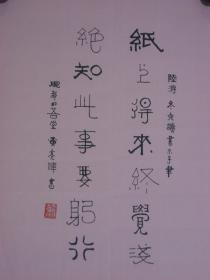 陸游 冬夜讀書示子聿
紙上得來終覺淺
絕知此事要躬行
書